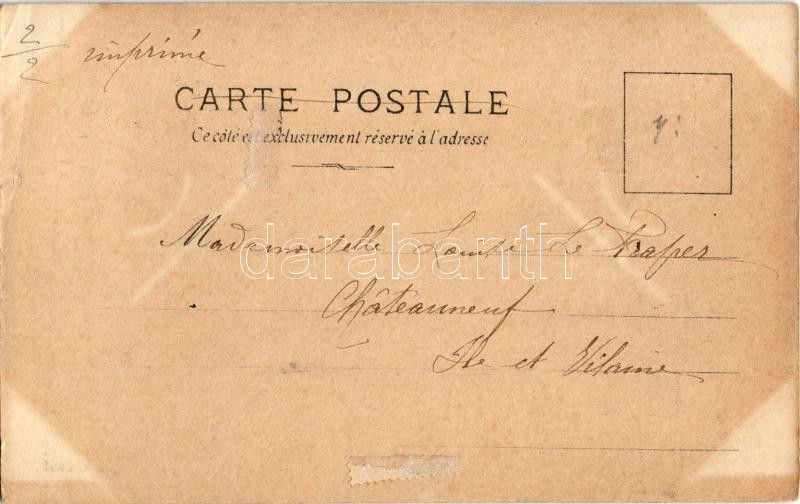 2/2 imprimé
CARTE POSTALE
Ce côté est exclusivement réservé à l'adresse
Mademoiselle Louise Le
darabanth
Châteauneuf
Ile et Vilaine